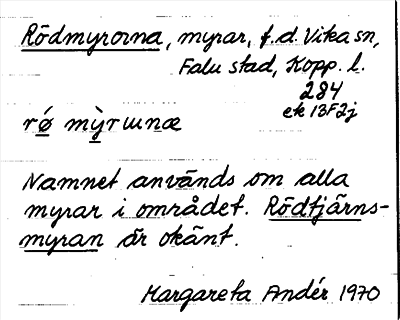 Rödmyrorna, myrar, f.d. Vika sn,
Falu stad, Kopp. l.
284
ek 13F2j
rǿ mỳrɯnæ
Namnet används om alla
myrar i området. Rödtjärns-
myran är okänt.
Margareta Andér 1970